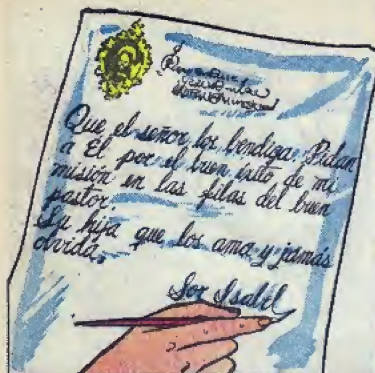 Que el señor los bendiga. Pidan
a El por el buen éxito de mi
misión en las filas del buen
pastor.
Su hija que los ama y jamás
olvida.
Sor Isabel